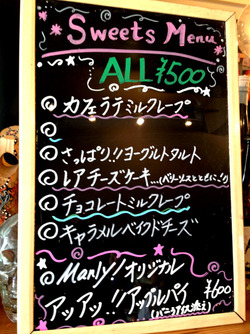 Sweets Menu
ALL ¥500
◎カフェラテミルクレープ
◎
◎さっぱり!!ヨーグルトタルト
◎レアチーズケーキ...(ベリーソースとともにどうぞ)
◎チョコレートミルクレープ
◎キャラメルベイクドチーズ
◎Manly!オリジナル
アツアツ!!アップルパイ ¥600
(バニラアイス添え)